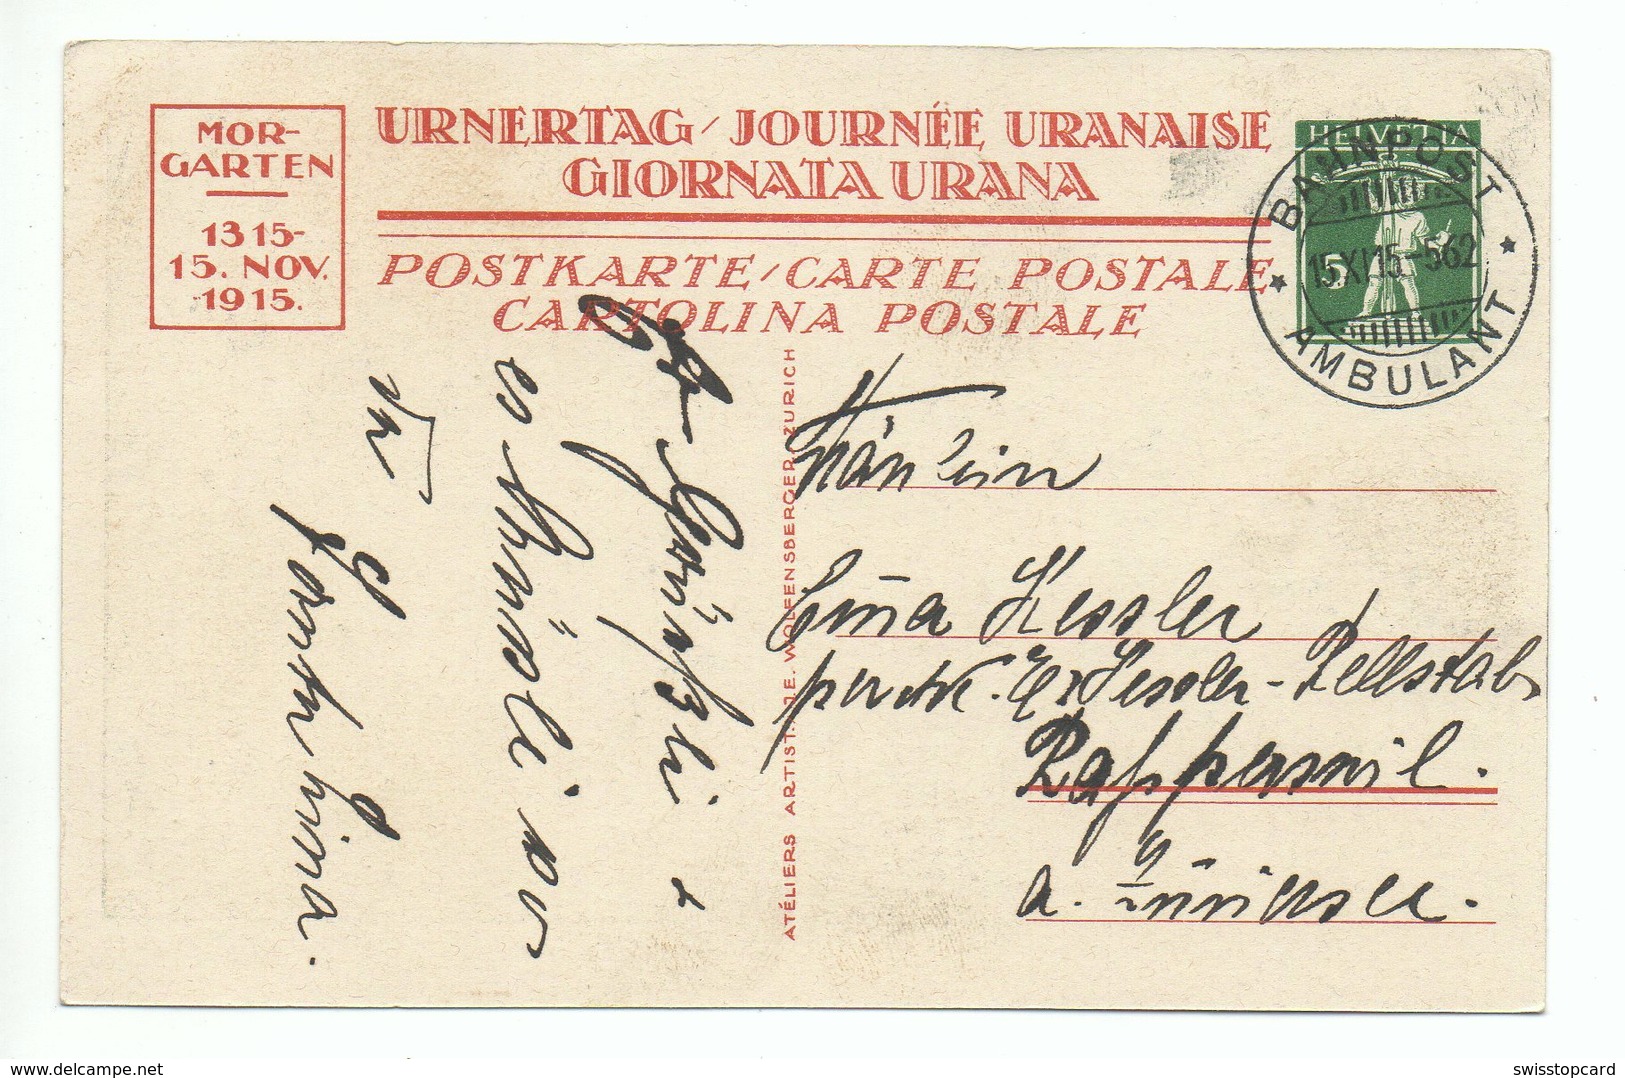 MOR-
GARTEN
1315-
15. NOV.
1915.
URNERTAG / JOURNÉE URANAISE
GIORNATA URANA
POSTKARTE / CARTE POSTALE
CARTOLINA POSTALE
HELVETIA
5
BAHNPOST
15.XI.15-562
AMBULANT
ATÉLIERS ARTIST. J.E. WOLFENSBERGER, ZURICH
Fräulein
Emma Kessler
Kessler-Rellstab
Rapperswil.
a. Zürichsee.
Grüssli +
es Müsli vo
swisstopcard
www.delcampe.net